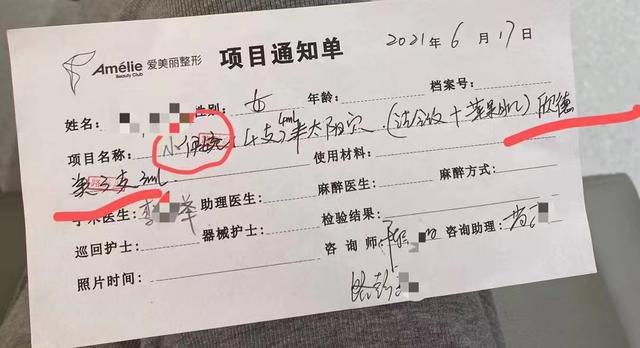 Amélie 爱美丽整形 项目通知单 2021年6月17日
Beauty Club
姓名: 性别: 女 年龄: 档案号:
项目名称: 4支 4ml 太阳穴 (法令纹+苹果肌) 欣德
美3支3ml 使用材料:
手术医生: 助理医生: 麻醉医生: 麻醉方式:
巡回护士: 器械护士: 检验结果:
照片时间: 咨询师: 咨询助理: